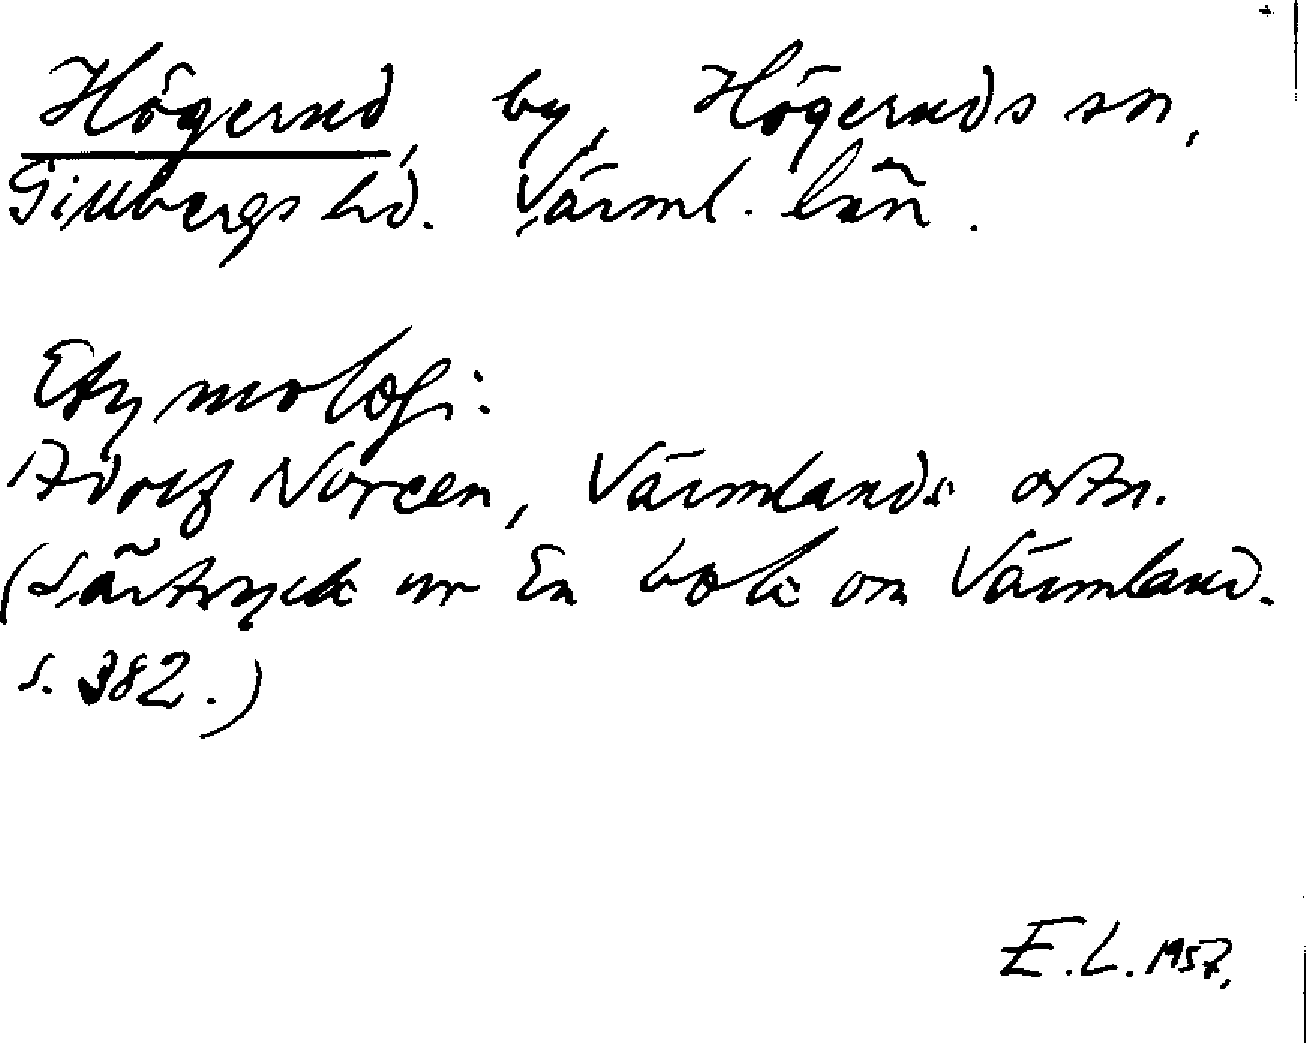 Högerud, by, Högeruds sn,
Gillbergs hd. Värml. län.
Etymologi:
Adolf Noreen, Värmlands ortn.
(Särtryck ur En bok om Värmland.
s. 382.)
E. L. 1957.